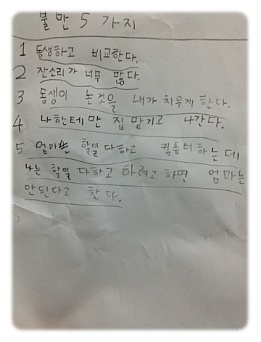 불만 5 가지
1 동생하고 비교한다.
2 잔소리가 너무 많다.
3 동생이 논것을 내가 치우게 한다.
4 나한테만 집 맡기고 나간다.
5 엄마는 할일 다하고 컴퓨터하는데
나는 할일 다하고 하려고하면 엄마는
안된다고 한다.